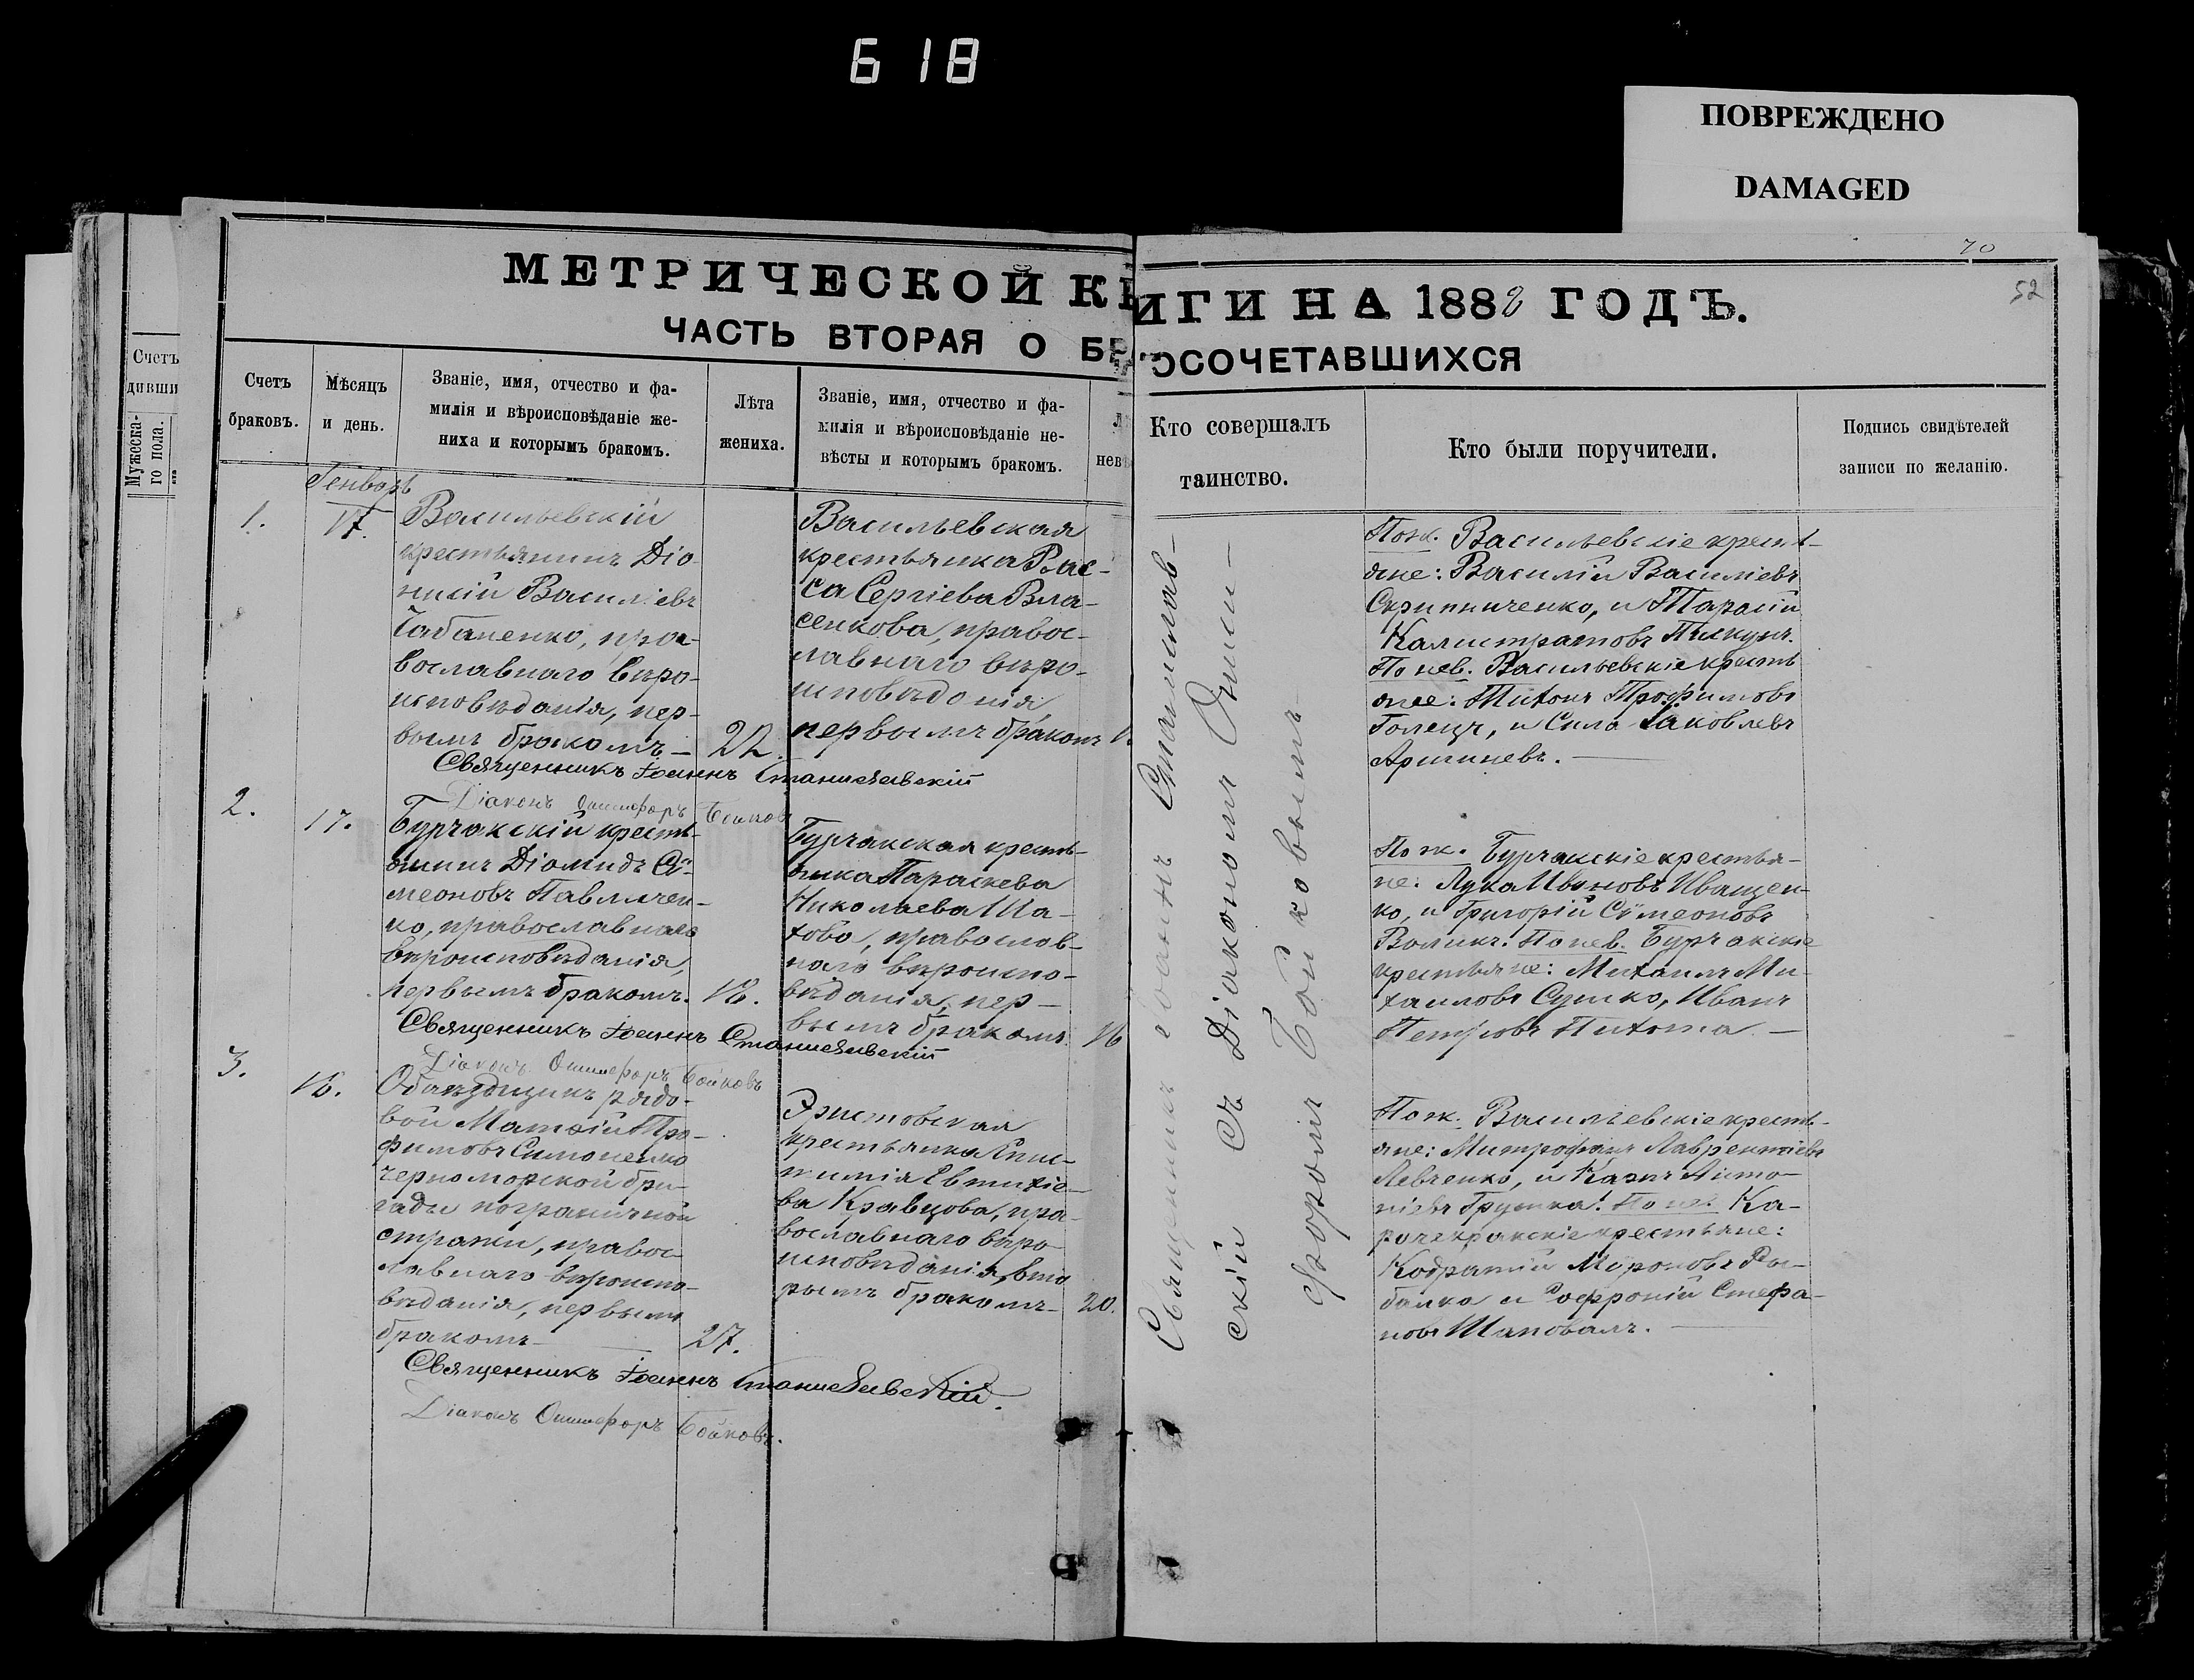 618
ПОВРЕЖДЕНО
DAMAGED
70
52
МЕТРИЧЕСКОЙ КНИГИ НА 1882 ГОДЪ.
ЧАСТЬ ВТОРАЯ О БРАКОСОЧЕТАВШИХСЯ
Счетъ
дивши
Мужеска-
го пола.
Счетъ
браковъ.
Мѣсяцъ
и день.
Званіе, имя, отчество и фа-
милія и вѣроисповѣданіе же-
ниха и которымъ бракомъ.
Лѣта
жениха.
Званіе, имя, отчество и фа-
милія и вѣроисповѣданіе не-
вѣсты и которымъ бракомъ.
Кто совершалъ
таинство.
Кто были поручители.
Подпись свидѣтелей
записи по желанію.
Генварь
1.
17.
Васильевскій
крестьянинъ Діо-
нисій Василіевъ
Чабаненко, пра-
вославнаго вѣро-
исповѣданія, пер-
вымъ бракомъ —
22.
Васильевская
крестьянка Вас-
са Сергіева Вла-
сенкова, правос-
лавнаго вѣро-
исповѣданія
первымъ бракомъ
Священникъ Іоаннъ Станиславскій
Діаконъ Онисифоръ Бойковъ
Пож. Васильевскіе кресть-
яне: Василій Василіевъ
Скрипниченко, и Тарасій
Калистратовъ Пискунъ.
По нев. Васильевскіе кресть
яне: Тихонъ Трофимовъ
Голецъ, и Сила Іаковлевъ
Аршиневъ. —
2.
17.
Бурчакскій кресть-
янинъ Діомидъ Си-
меоновъ Павличен-
ко, православнаго
вѣроисповѣданія,
первымъ бракомъ.
18.
Бурчакская кресть-
янка Параскева
Николаева Ша-
хова, православ-
наго вѣроиспо-
вѣданія, пер-
вымъ бракомъ.
16
Священникъ Іоаннъ Станиславскій
Діаконъ Онисифоръ Бойковъ
По ж. Бурчакскіе крестья-
не: Лука Ивановъ Иващен-
ко, и Григорій Сѵмеоновъ
Воликъ. По нев. Бурчакскіе
крестьяне: Михаилъ Ми-
хаиловъ Сушко, Иванъ
Петровъ Пихота —
3.
18.
Объѣздщикъ рядо-
вой Матѳій Тро-
фимовъ Симоненко
Черноморской бри-
гады пограничной
стражи, правос-
лавнаго вѣроиспо-
вѣданія, первымъ
бракомъ —
27.
Эристовская
крестьянка
Евтихіе-
ва Кравцова, пра-
вославнаго вѣро
исповѣданія, вто
рымъ бракомъ —
20.
Священникъ Іоаннъ Станиславскій.
Діаконъ Онисифоръ Бойковъ.
По ж. Васильевскіе кресть-
яне: Митрофанъ Лаврентіевъ
Левченко, и Карпъ Анто-
ніевъ Грушка. По нев. Ка-
рачекракскіе крестьяне:
Кодратій Мѵроновъ Ры-
балка и Софроній Стефа-
новъ Шаповалъ. —
Священникъ Іоаннъ Станислав-
скій Съ Діакономъ Ониси-
форомъ Бойковымъ